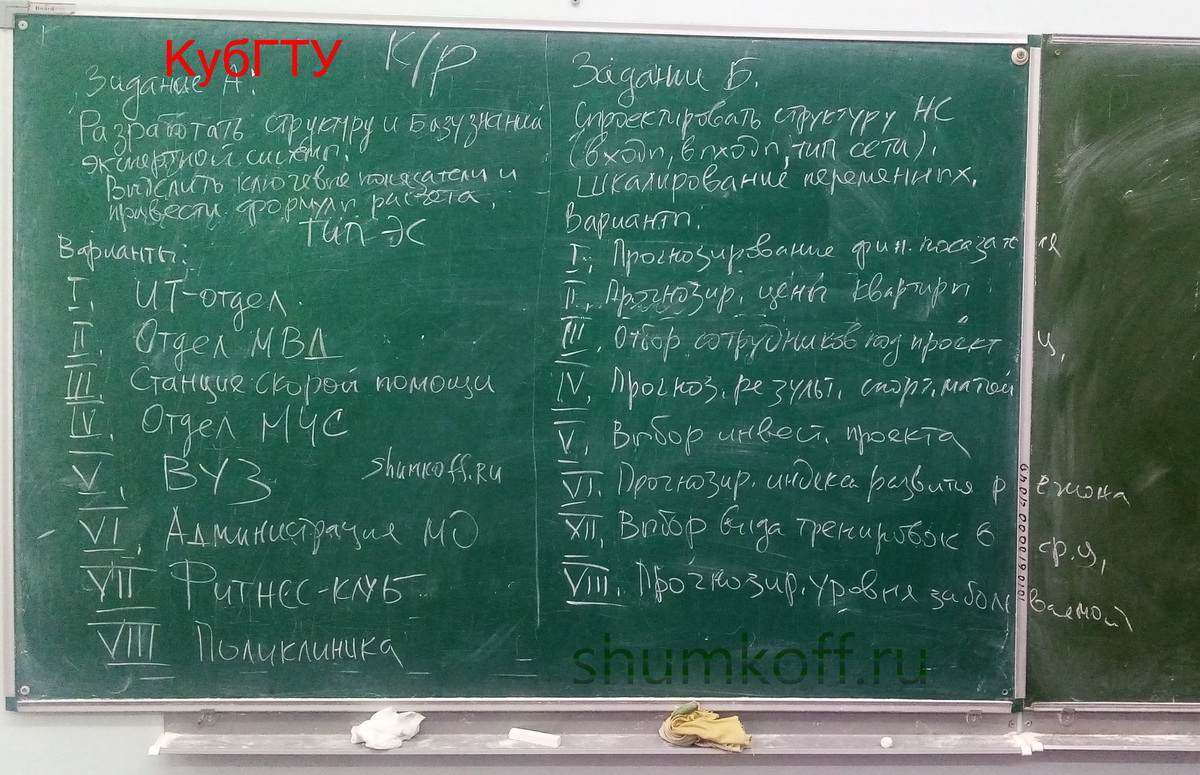 КубГТУ
К/р
Задание А:
Разработать структуру и базу знаний
экспертной системы.
Вычислить ключевые показатели и
привести формулы расчёта.
Тип ЭС
Варианты:
I. ИТ-отдел.
II. Отдел МВД
III. Станция скорой помощи
IV. Отдел МЧС
V. ВУЗ
shumkoff.ru
VI. Администрация МО
VII Фитнес-клуб
VIII Поликлиника
Задание Б.
Спроектировать структуру НС
(входы, выходы, тип сети).
Шкалирование переменных.
Варианты:
I. Прогнозирование фин. показателя
II. Прогнозир. цены квартиры
III. Отбор сотрудников под проект
IV. Прогноз. результ. спорт. матчей
V. Выбор инвест. проекта
VI. Прогнозир. индекса развития региона
XII. Выбор вида тренировок в ср.ц,
VIII. Прогнозир. уровня заболеваемой
shumkoff.ru